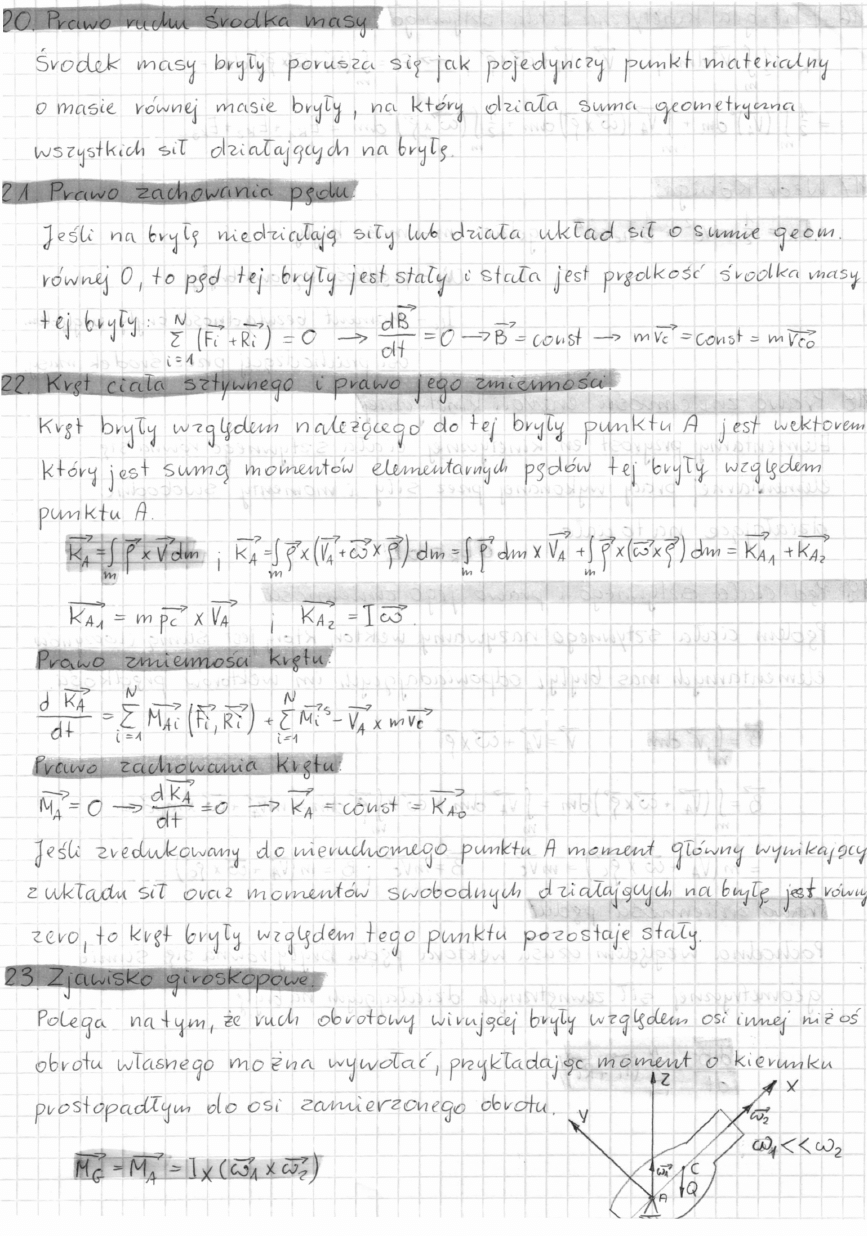 20. Prawo ruchu środka masy.
Środek masy bryły porusza się jak pojedynczy punkt materialny
o masie równej masie bryły, na który działa suma geometryczna
wszystkich sił działających na bryłę.
21 Prawo zachowania pędu.
Jeśli na bryłę niedziałają siły lub działa układ sił o sumie geom.
równej 0, to pęd tej bryły jest stały i stała jest prędkość środka masy
tej bryły: $\sum_{i=1}^{N} (\vec{F_i} + \vec{R_i}) = 0 \rightarrow \frac{d\vec{B}}{dt} = 0 \rightarrow \vec{B} = const \rightarrow m\vec{v_c} = const = m\vec{v_{c0}}$
22. Kręt ciała sztywnego i prawo jego zmienności.
Kręt bryły względem należącego do tej bryły punktu A jest wektorem
który jest sumą momentów elementarnych pędów tej bryły względem
punktu A.
$\vec{K_A} = \int_m \vec{\rho} \times \vec{V} dm$ ; $\vec{K_A} = \int_m \vec{\rho} \times (\vec{V_A} + \vec{\omega} \times \vec{\rho}) dm = \int_m \vec{\rho} dm \times \vec{V_A} + \int_m \vec{\rho} \times (\vec{\omega} \times \vec{\rho}) dm = \vec{K_{A1}} + \vec{K_{A2}}$
$\vec{K_{A1}} = m \vec{\rho_c} \times \vec{V_A}$ ; $\vec{K_{A2}} = I \vec{\omega}$.
Prawo zmienności krętu:
$\frac{d\vec{K_A}}{dt} = \sum_{i=1}^{N} \vec{M_{Ai}} (\vec{F_i}, \vec{R_i}) + \sum_{i=1}^{N} \vec{M_i}^s - \vec{V_A} \times m\vec{v_c}$
Prawo zachowania krętu:
$\vec{M_A} = 0 \rightarrow \frac{d\vec{K_A}}{dt} = 0 \rightarrow \vec{K_A} = const = \vec{K_{A0}}$
Jeśli zredukowany do nieruchomego punktu A moment główny wynikający
z układu sił oraz momentów swobodnych działających na bryłę jest równy
zero, to kręt bryły względem tego punktu pozostaje stały.
23. Zjawisko giroskopowe.
Polega na tym, że ruch obrotowy wirującej bryły względem osi innej niż oś
obrotu własnego można wywołać, przykładając moment o kierunku
prostopadłym do osi zamierzonego obrotu.
$\vec{M_G} = \vec{M_A} = I_X (\vec{\omega_1} \times \vec{\omega_2})$
Z
X
Y
$\vec{\omega_2}$
$\omega_1 << \omega_2$
$\vec{\omega_1}$
C
Q
A